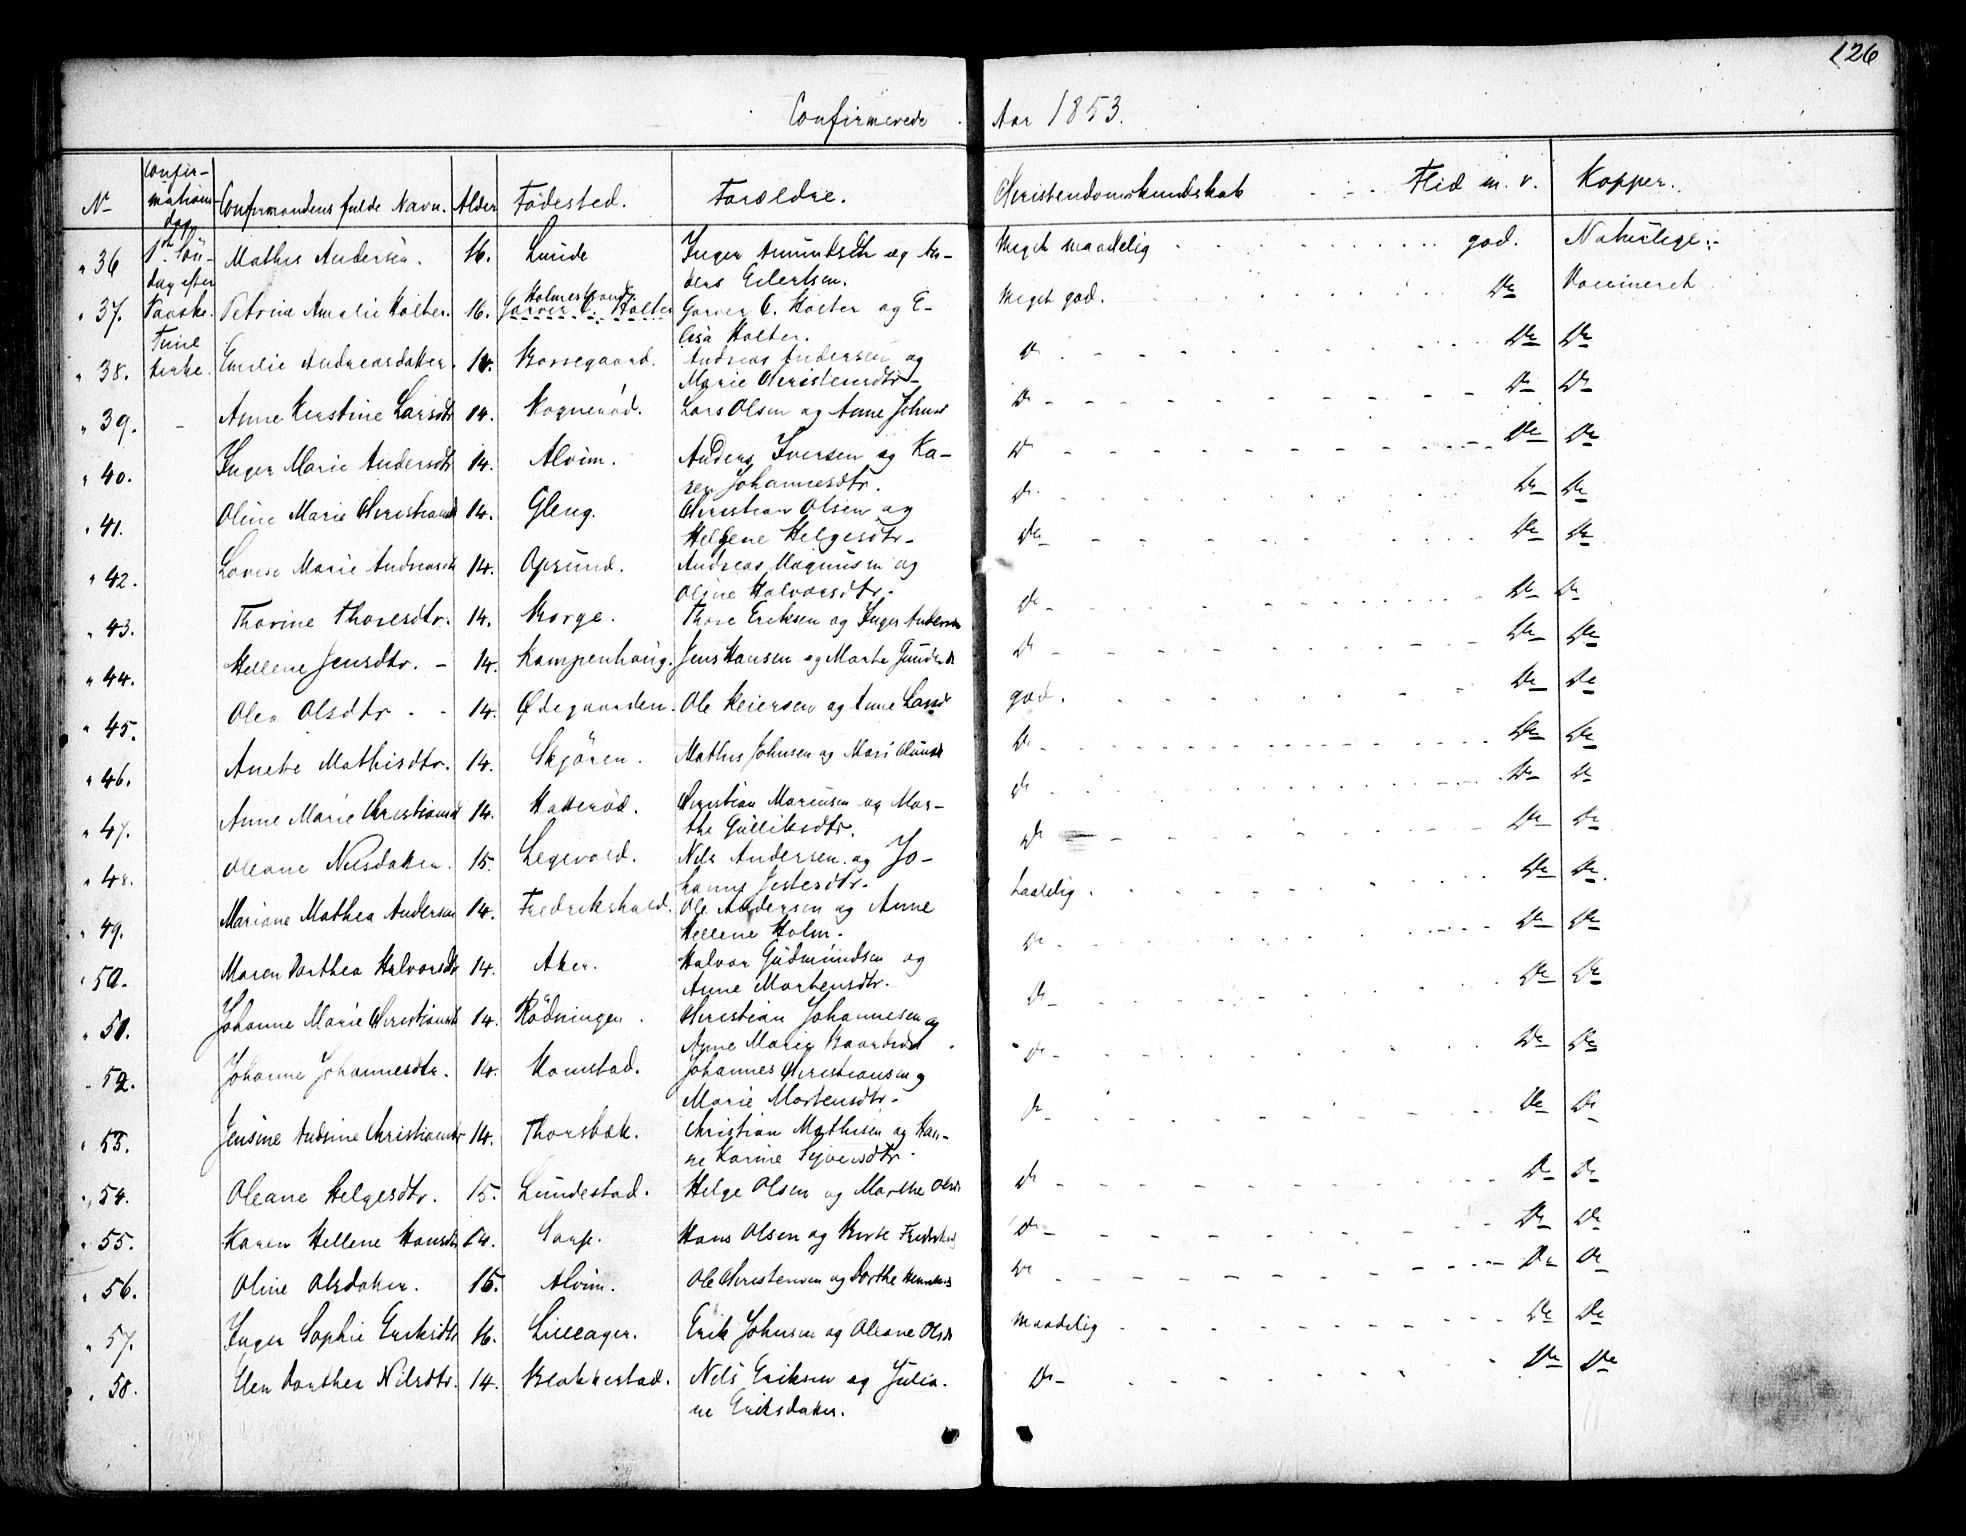 126
Confirmerede Aar 1853.
No Confirmations dag Confirmandens fulde Navn. Alder Fødested. Forældre. Christendomskundskab Flid m. v. Kopper.
1ste Søndag efter Paaske. Tune Kirke.
" 36 Mathis Andersen. 16. Lunde Inger Amundsdtr og An-
ders Eilertsen. Meget maadelig god. Naturlige.
" 37. Petrine Amalie Holter. 16. Holmestrand Garver C. Holter Garver C. Holter og E-
lisa Holter. Meget god. Do Vaccineret
" 38. Emilie Andreasdater. 14. Borregaard. Andreas Andersen og
Marie Christensdtr. Do Do Do
" 39. Anne Kirstine Larsdtr 14. Rognerød. Lars Olsen og Anne Johnsd Do Do Do
" 40. Inger Marie Andersdtr 14. Alvim. Anders Iversen og Ka-
ren Johannesdtr. Do Do Do
" 41. Oline Marie Christiansd 14. Gleng. Christian Olsen og
Hellene Helgesdtr. Do Do Do
" 42. Lovise Marie Andreasdt 14. Opsund. Andreas Magnusen og
Oline Halvorsdtr. Do Do Do
" 43. Thorine Thoresdtr. 14. Borge. Thore Eriksen og Inger Anders Do Do Do
" 44. Hellene Jensdtr. 14. Kampenhaug. Jens Hansen og Marte Gundersd Do Do Do
" 45. Olea Olsdtr 14. Ødegaarden. Ole Reiersen og Anne Larsd god. Do Do
" 46. Anette Mathisdtr. 14. Skjøren. Mathis Johnsen og Mari Do Do Do
" 47. Anne Marie Christiansd 14. Hatterød. Christian Marensen og Mar-
the Gulliksdtr. Do Do Do
" 48. Oleane Nilsdater. 15. Legevold. Nils Andersen og Jo-
hanne Do Do Do
" 49. Mariane Mathea Andersen 14. Fredrikshald. Ole Andersen og Anne
Hellene Holm. Laadelig. Do Do
" 50. Maren Dorthea Halvorsdtr 14. Aker. Halvor Gudmundsen og
Anne Mortensdtr. Do Do Do
" 51. Johanne Marie Christiansdt 14. Rødningen. Christian Johannesen og
Anne Marie Baardsdt Do Do Do
" 52. Johanne Johannesdtr. 14. Homstad. Johannes Christiansen og
Marie Mortensdtr. Do Do Do
" 53. Jensine Andrine Christiansdtr 14. Thorsbæk. Christian Mathisen og Han-
ne Karine Syversdtr. Do Do Do
" 54. Oleane Helgesdtr. 15. Lundestad. Helge Olsen og Marthe Olsdt Do Do Do
" 55. Karen Hellene Hansdtr 14. Sarp. Hans Olsen og Berte Do Do Do
" 56. Oline Olsdater. 15. Alvim. Ole Christensen og Dorthe Do Do Do
" 57. Inger Sophie Eriksdtr 16. Lilleager. Erik Johnsen og Oleane Olsdt maadelig Do Do
" 58. Elen Dorthea Nilsdtr. 14. Blakkestad. Nils Eriksen og Julia-
ne Eriksdater. Do Do Do